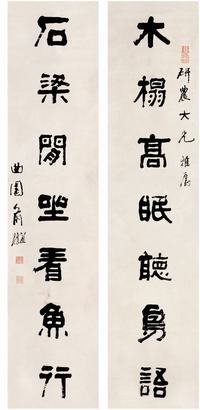 木榻高眠聽鳥語
研農大兄雅屬
石梁閒坐看魚行
曲園俞樾